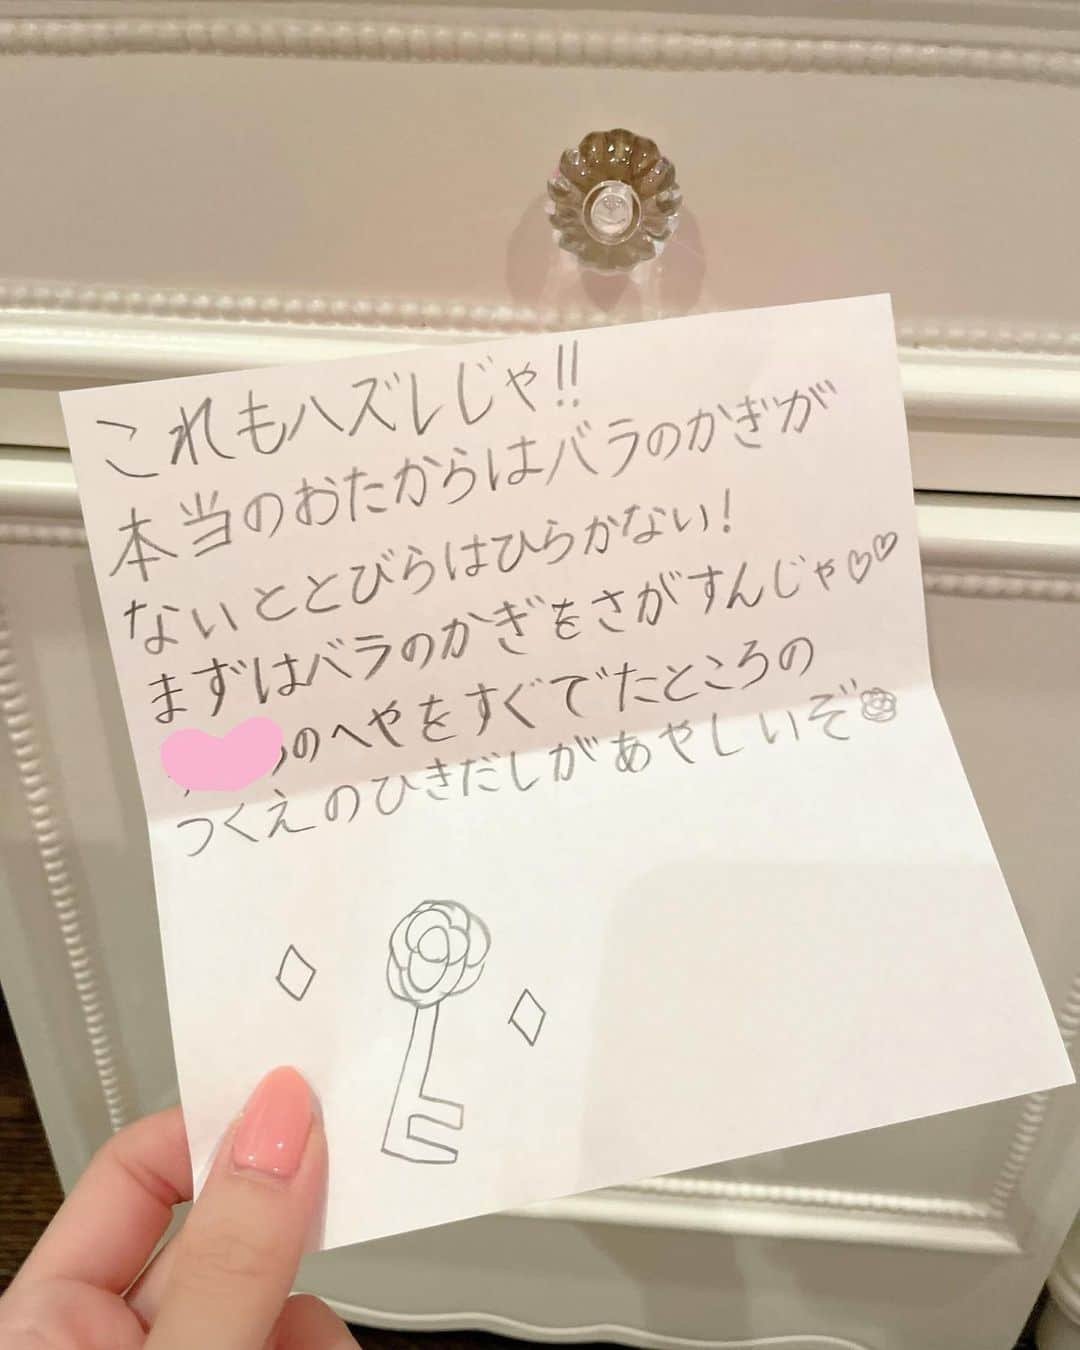 これもハズレじゃ!!
本当のおたからはバラのかぎが
ないととびらはひらかない!
まずはバラのかぎをさがすんじゃ♡♡
のへやをすぐでたところの
つくえのひきだしがあやしいぞ